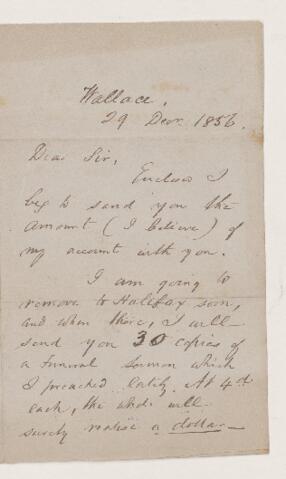 Wallace,
29 Decr. 1856.
Dear Sir,
Enclosed I
beg to send you the
amount (I believe) of
my account with you.
I am going to
remove to Halifax soon,
and when there, I will
send you 30 copies of
a funeral sermon which
I preached lately. At 4d
each, the whole will
surely realise a dollar—